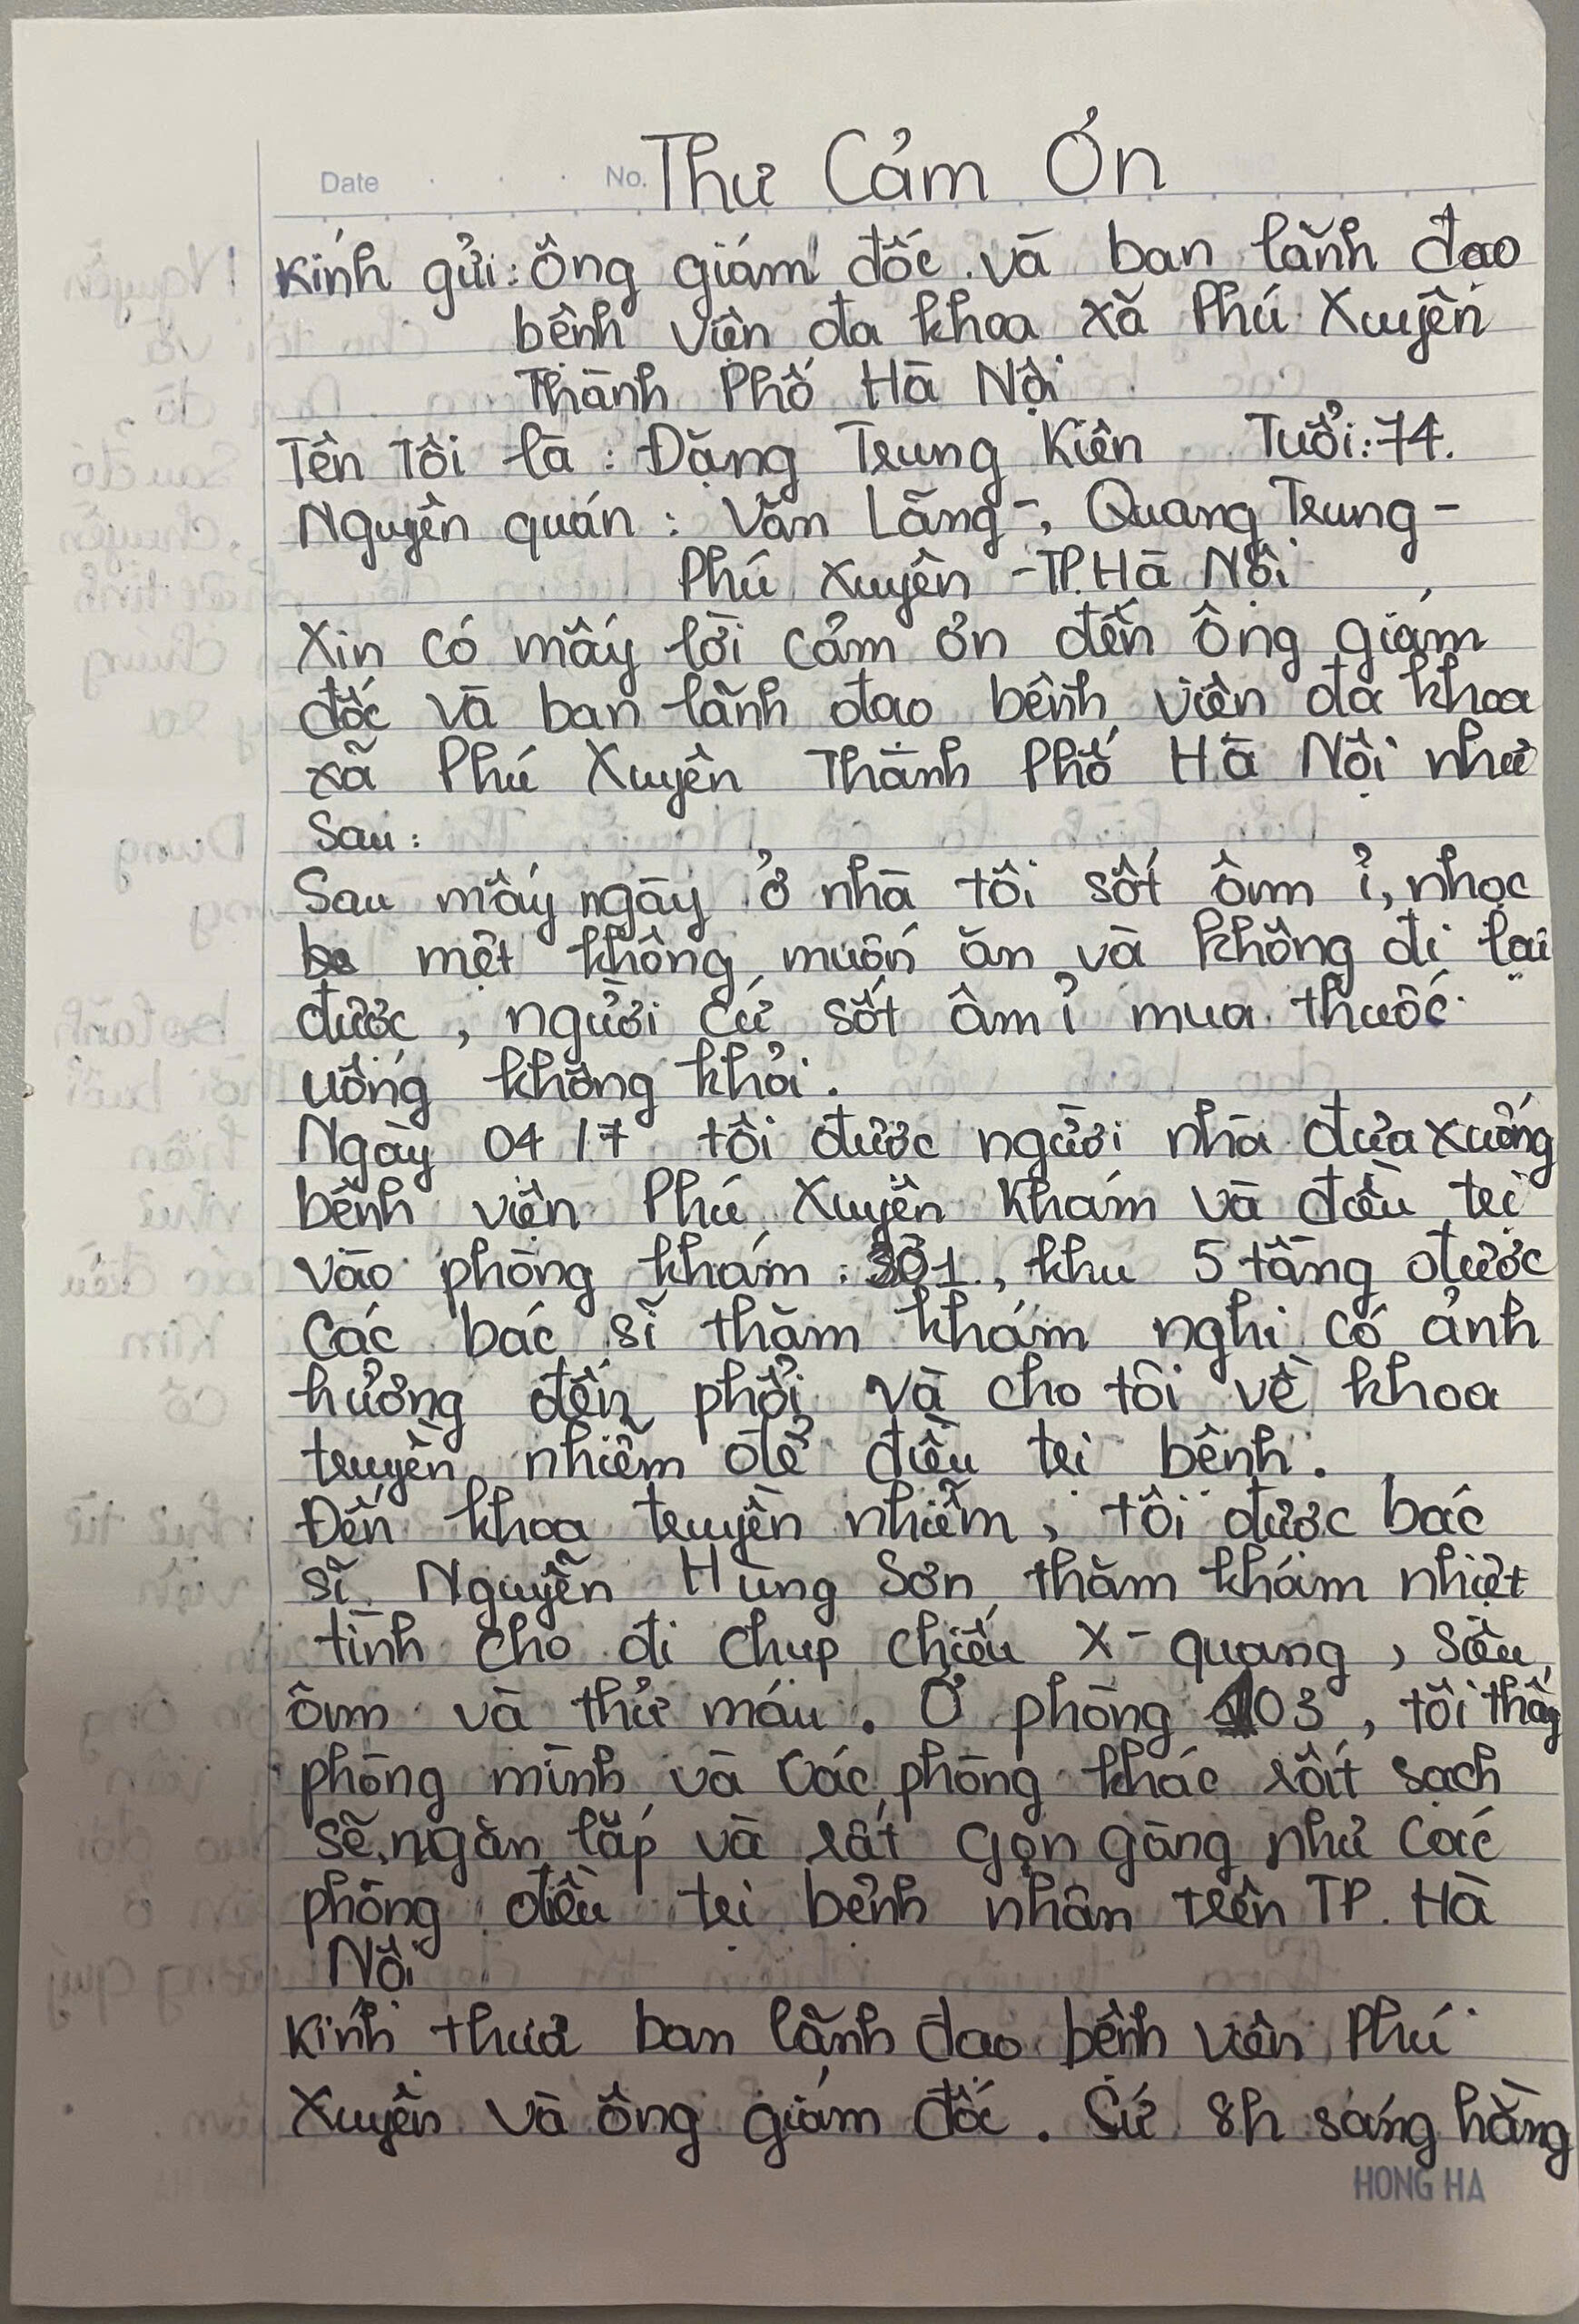 Date No. Thư Cảm Ơn
Kính gửi: Ông giám đốc và ban lãnh đạo
bệnh viện đa khoa xã Phú Xuyên
Thành Phố Hà Nội
Tên Tôi là : Đặng Trung Kiên Tuổi: 74.
Nguyên quán : Văn Lãng -, Quang Trung -
Phú Xuyên - TP. Hà Nội
Xin có mấy lời cảm ơn đến Ông giám
đốc và ban lãnh đạo bệnh viện đa khoa
xã Phú Xuyên Thành Phố Hà Nội như
Sau :
Sau mấy ngày ở nhà tôi sốt âm ỉ, nhọc
mệt không muốn ăn và không đi lại
được, người cứ sốt âm ỉ mua thuốc
uống không khỏi.
Ngày 04/7 tôi được người nhà đưa xuống
bệnh viện Phú Xuyên Khám và điều trị
vào phòng khám : 301, khu 5 tầng được
Các bác sĩ thăm khám nghi có ảnh
hưởng đến phổi và cho tôi về khoa
truyền nhiễm để điều trị bệnh.
Đến khoa truyền nhiễm, tôi được bác
sĩ Nguyễn Hùng Sơn thăm khám nhiệt
tình cho đi chụp chiếu X-quang, siêu
âm và thử máu. Ở phòng 103, tôi thấy
phòng mình và các phòng khác rất sạch
sẽ, ngăn lắp và rất gọn gàng như các
phòng điều trị bệnh nhân trên TP. Hà
Nội
Kính thưa ban lãnh đạo bệnh viện Phú
Xuyên và ông giám đốc. Cứ 8h sáng hàng
HONG HA